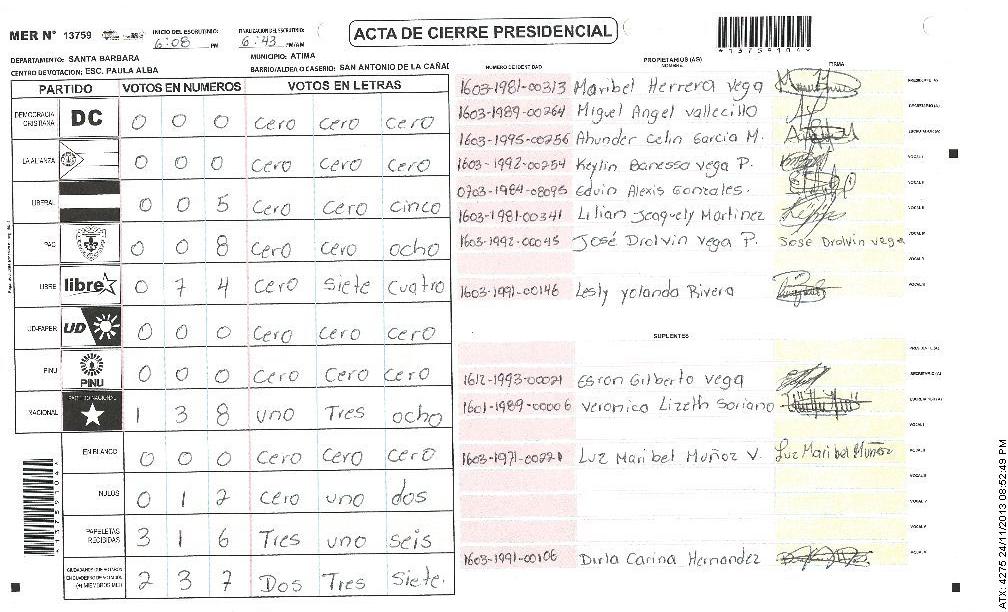 MER N° 13759
INICIO DEL ESCRUTINIO: 6:08 PM
FINALIZACION DEL ESCRUTINIO: 6:43 PM/AM
ACTA DE CIERRE PRESIDENCIAL
DEPARTAMENTO: SANTA BARBARA
MUNICIPIO: ATIMA
CENTRO DE VOTACION: ESC. PAULA ALBA
BARRIO/ALDEA O CASERIO: SAN ANTONIO DE LA CAÑAD
PARTIDO VOTOS EN NUMEROS VOTOS EN LETRAS
DEMOCRACIA CRISTIANA DC 0 0 0 Cero Cero Cero
LA ALIANZA 0 0 0 Cero Cero Cero
LIBERAL 0 0 5 Cero Cero cinco
PAC 0 0 8 Cero Cero ocho
LIBRE libre 0 7 4 Cero Siete Cuatro
UD-FAPER UD 0 0 0 Cero Cero Cero
PINU PINU 0 0 0 Cero Cero Cero
NACIONAL PARTIDO NACIONAL 1 3 8 uno Tres ocho
EN BLANCO 0 0 0 Cero Cero Cero
NULOS 0 1 2 Cero uno dos
PAPELETAS RECIBIDAS 3 1 6 Tres uno seis
CIUDADANOS QUE VOTARON EN CUADERNO DE VOTACION (+) MIEMBROS MER 2 3 7 Dos Tres Siete.
NUMERO DE IDENTIDAD PROPIETARIOS (AS) NOMBRE FIRMA
1603-1981-00313 Maribel Herrera Vega PRESIDENTE (A)
1603-1989-00264 Miguel Angel vallecillo SECRETARIO (A)
1603-1995-00256 Ahunder Celin Garcia M.
1603-1992-00254 Keylin Banessa vega P. VOCAL I
0703-1984-08095 Edvin Alexis Gonzales. VOCAL II
1603-1981-00341 Lilian Jeaquely Martinez
1603-1992-00045 José Drolvin vega P. Jose Drolvin vega
1603-1991-00146 Lesly Yolanda Rivera
SUPLENTES
1612-1993-00021 Esron Gilberto vega SECRETARIO (A)
1601-1989-00006 veronica Lizeth Soriano
1603-1971-00221 Luz Maribel Muñoz V. Luz Maribel Muñoz
1603-1991-00106 Dirla Carina Hernandez
*13759104*
ATX: 4275 24/11/2013 08:52:49 PM